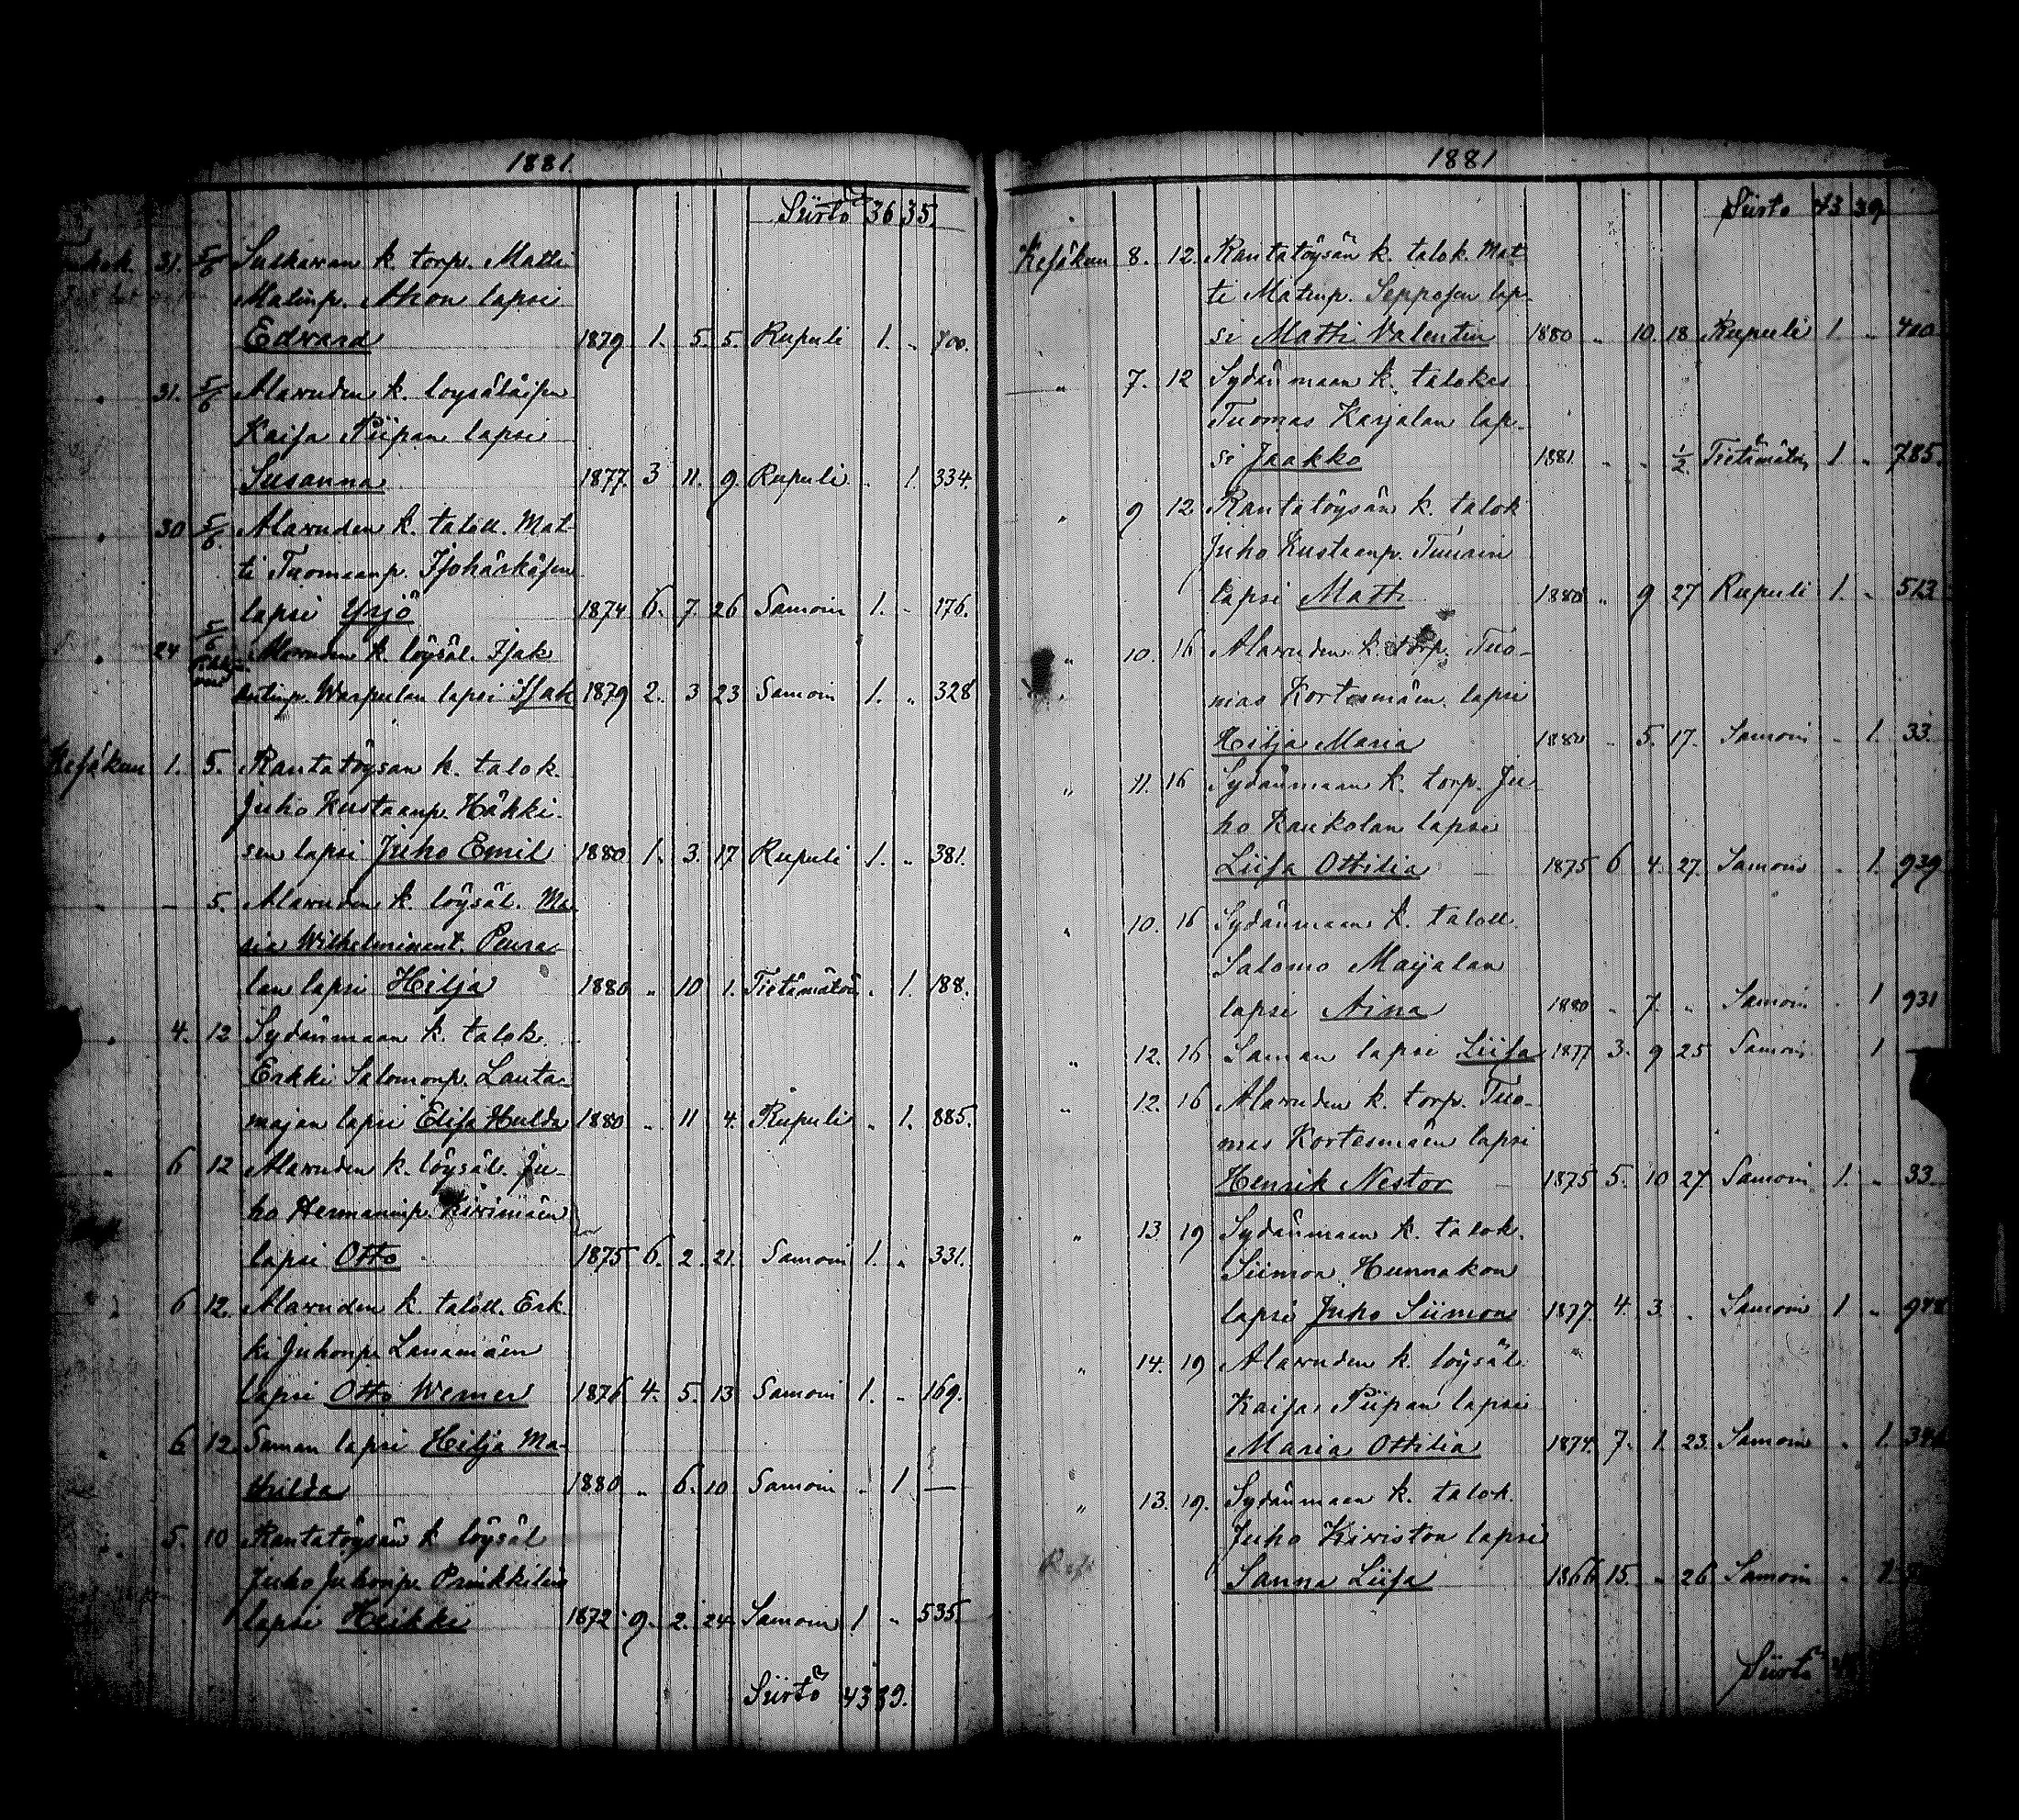 1881.
Siirto 36 35.
31. 5/6 Sulkawan k. torp. Matti
Matinp. Ahon lapsi
Edvard 1879 1. 5. 5. Rupuli 1. „ 700.
„ 31. 5/6 Alawuden k. loysäläisen
Kaisa Piipan lapsi
Susanna 1877. 3 11. 9. Rupuli „ 1. 334.
„ 30 5/6. Alawuden k. taloll. Mat-
ti Tuomaanp. Isohärkäsen
lapsi Yrjö 1874 6. 7. 26 Samoin 1. „ 176.
„ 24 5/6 Alawuden k. löysäl. Isak
Antinp. Warpulan lapsi Isak 1879 2. 3 23 Samoin 1. „ 328
Kesäkuu 1. 5. Rantatöysän k. talok.
Juho Kustaanp. Häkki-
sen lapsi Juho Emil 1880 1. 3. 17 Rupuli 1. „ 381.
— 5. Alawuden k. löysäl. Ma-
ria Wilhelminent. Peura-
lan lapsi Hilja 1880 „ 10 1. Tietämätön „ 1. 188.
„ 4. 12 Sydänmaan k. talok.
Erkki Salomonp. Lauta-
majan lapsi Elisa Hulda 1880 „ 11 4. Rupuli „ 1. 885.
„ 6 12 Alawuden k. löysäl. Ju-
ho Hermaninp. Kiwimäen
lapsi Otto 1875 6. 2. 21. Samoin 1. „ 331.
„ 6 12. Alawuden k. taloll. Erk-
ki Juhonp. Lanamäen
lapsi Otto Werner 1876 4. 5. 13 Samoin 1. „ 169.
6 12. Saman lapsi Hilja Ma-
thilda 1880 „ 6. 10 Samoin „ 1 —
„ 5. 10 Rantatöysän k löysäl
Juho Juhonp. lapsi Heikki 1872 9. 2. 24. Samoin 1 „ 535.
Siirto 43 39.
1881
Siirto 43 39
Kesäkuu 8. 12. Rantatöysän k. talok. Mat-
ti Matinp. Sepposen lap-
si Matti Valentin 1880 „ 10. 18 Rupuli 1. „ 400
„ 7. 12 Sydänmaan k. talokas
Tuomas Karjalan lap-
si Jaakko 1881. „ „ 1/2. Tietämätön 1 „ 785.
„ 9 12 Rantatöysän k. talok
Juho Kustaanp. Tuurin
lapsi Matti 1880 „ 9 27 Rupuli 1. „ 513
„ 10. 16 Alawuden k. torp. Tuo-
mas Kortesmäen lapsi
Hilja Maria 1880 „ 5. 17. Samoin „ 1 33.
„ 11. 16 Sydänmaan k. torp. Ju-
ho Kaukolan lapsi
Liisa Ottilia 1875 6 4. 27. Samoin „ 1. 939
„ 10. 16 Sydänmaan k. taloll.
Salomo Maijalan
lapsi Aina 1880 „ 7. „ Samoin „ 1 931
„ 12. 16 Saman lapsi Liisa 1877 3. 9 25 Samoin 1 —
„ 12. 16 Alawuden k. torp. Tuo-
mas Kortesmäen lapsi
Henrik Nestor 1875 5. 10 27 Samoin 1. „ 33
„ 13. 19 Sydänmaan k. talok.
Siimon Hunnakon
lapsi Juho Siimon 1877. 4. 3. „ Samoin 1 „
„ 14. 19 Alawuden k. löysäl.
Kaisa Piipan lapsi
Maria Ottilia 1874. 7. 1. 23. Samoin „ 1.
„ 13. 19. Sydänmaan k. talok.
Juho Kiwiston lapsi
Sanna Liisa 1866 15. „ 26 Samoin „ 1
Siirto